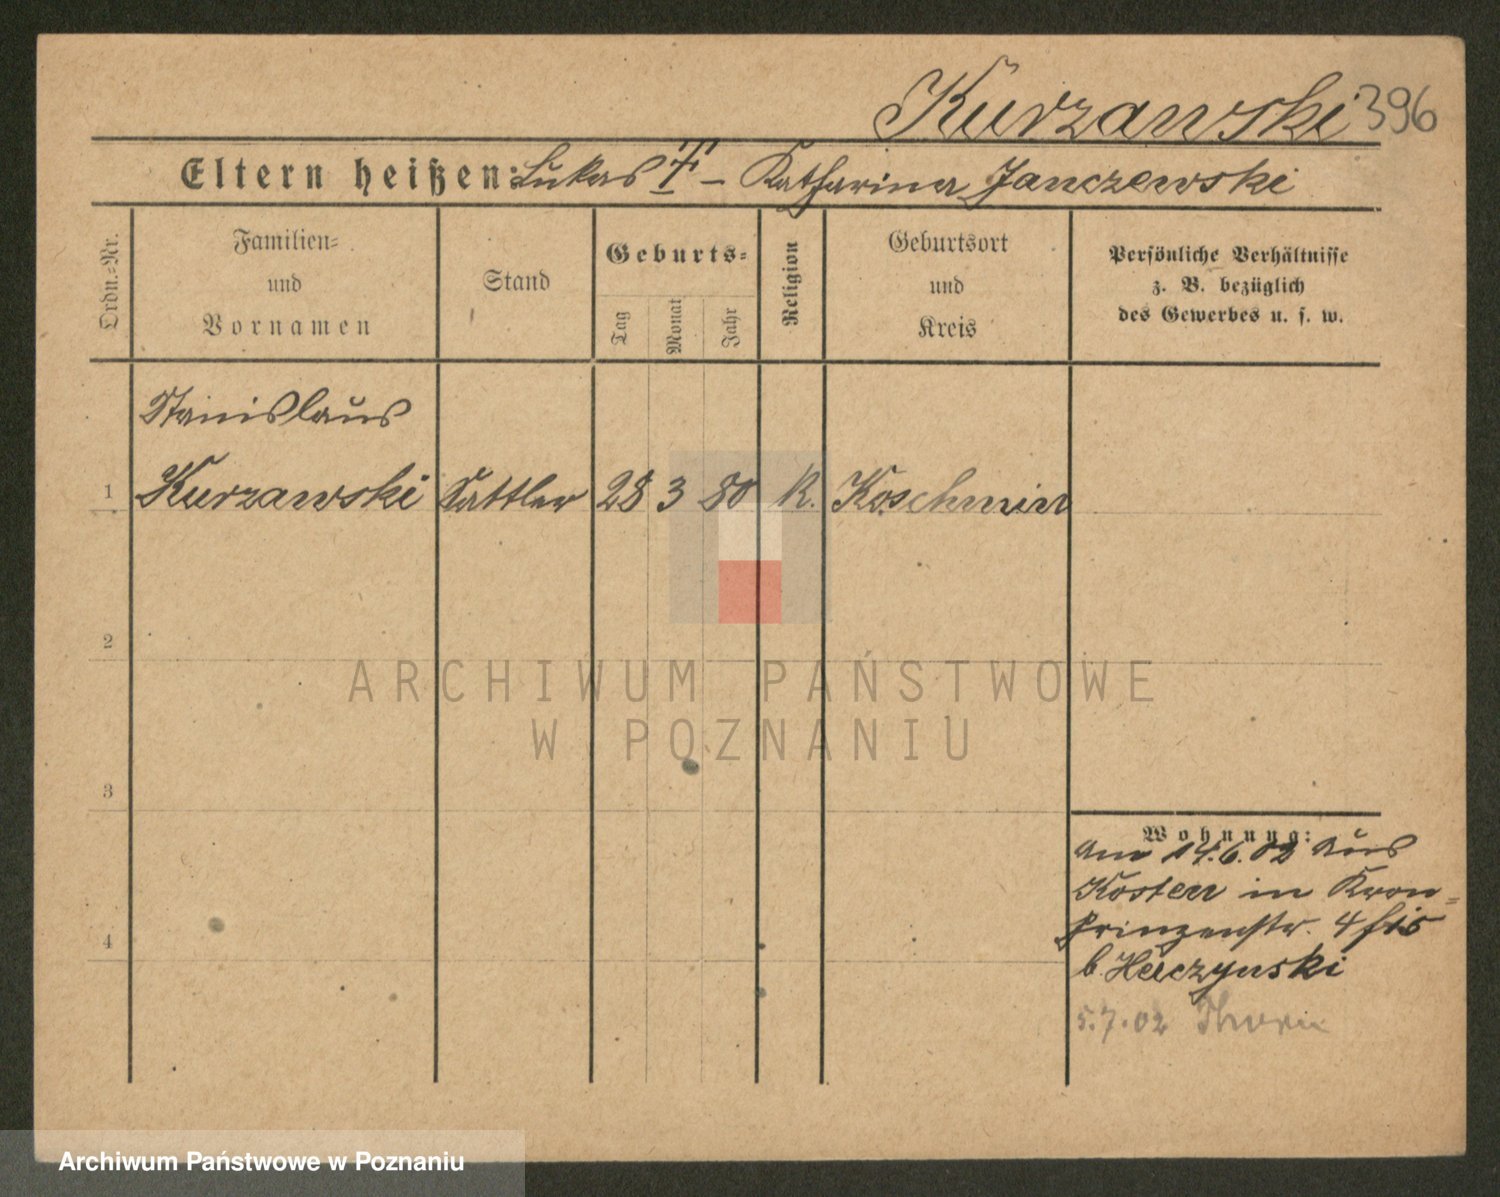 Kurzawski 396
Eltern heißen: Lukas † – Katharina Janczewski
Ordn.-Nr.
Familien-
und
Vornamen
Stand
Geburts-
Tag
Monat
Jahr
Religion
Geburtsort
und
Kreis
Persönliche Verhältnisse
z. B. bezüglich
des Gewerbes u. s. w.
Stanislaus
1 Kurzawski Sattler 28 3 80 K. Koschmin
2
3
4
Wohnung:
Am 14.6.02 aus
Kosten in Kron-
prinzenstr. 4
b. Herczynski
5.7.02 Thorn
ARCHIWUM PAŃSTWOWE
W POZNANIU
Archiwum Państwowe w Poznaniu